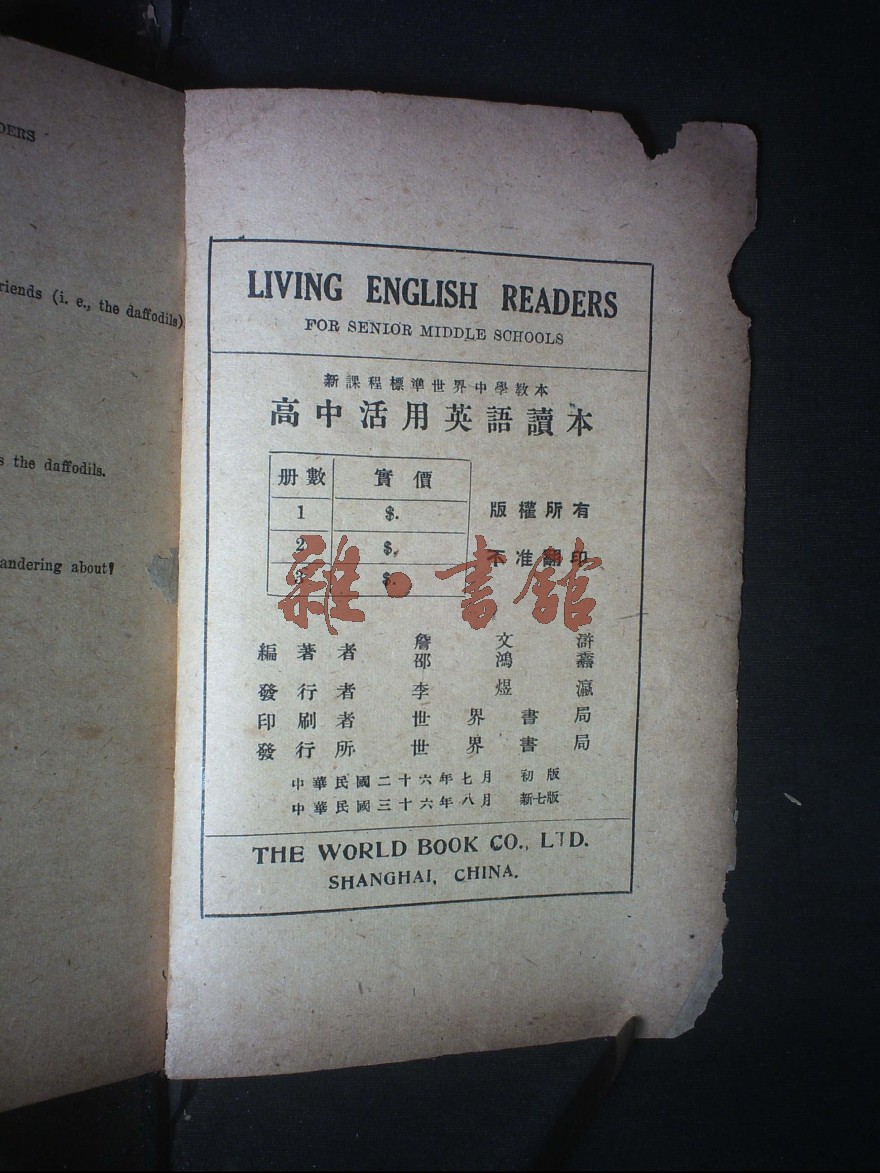 DERS
riends (i. e., the daffodils)
s the daffodils.
andering about!
LIVING ENGLISH READERS
FOR SENIOR MIDDLE SCHOOLS
新課程標準世界中學教本
高中活用英語讀本
册數 實價
1 $.
2 $.
3 $.
版權所有
不准翻印
雜·書館
編著者 詹文滸
邵鴻馫
發行者 李煜瀛
印刷者 世界書局
發行所 世界書局
中華民國二十六年七月 初版
中華民國三十六年八月 新七版
THE WORLD BOOK CO., LTD.
SHANGHAI, CHINA.